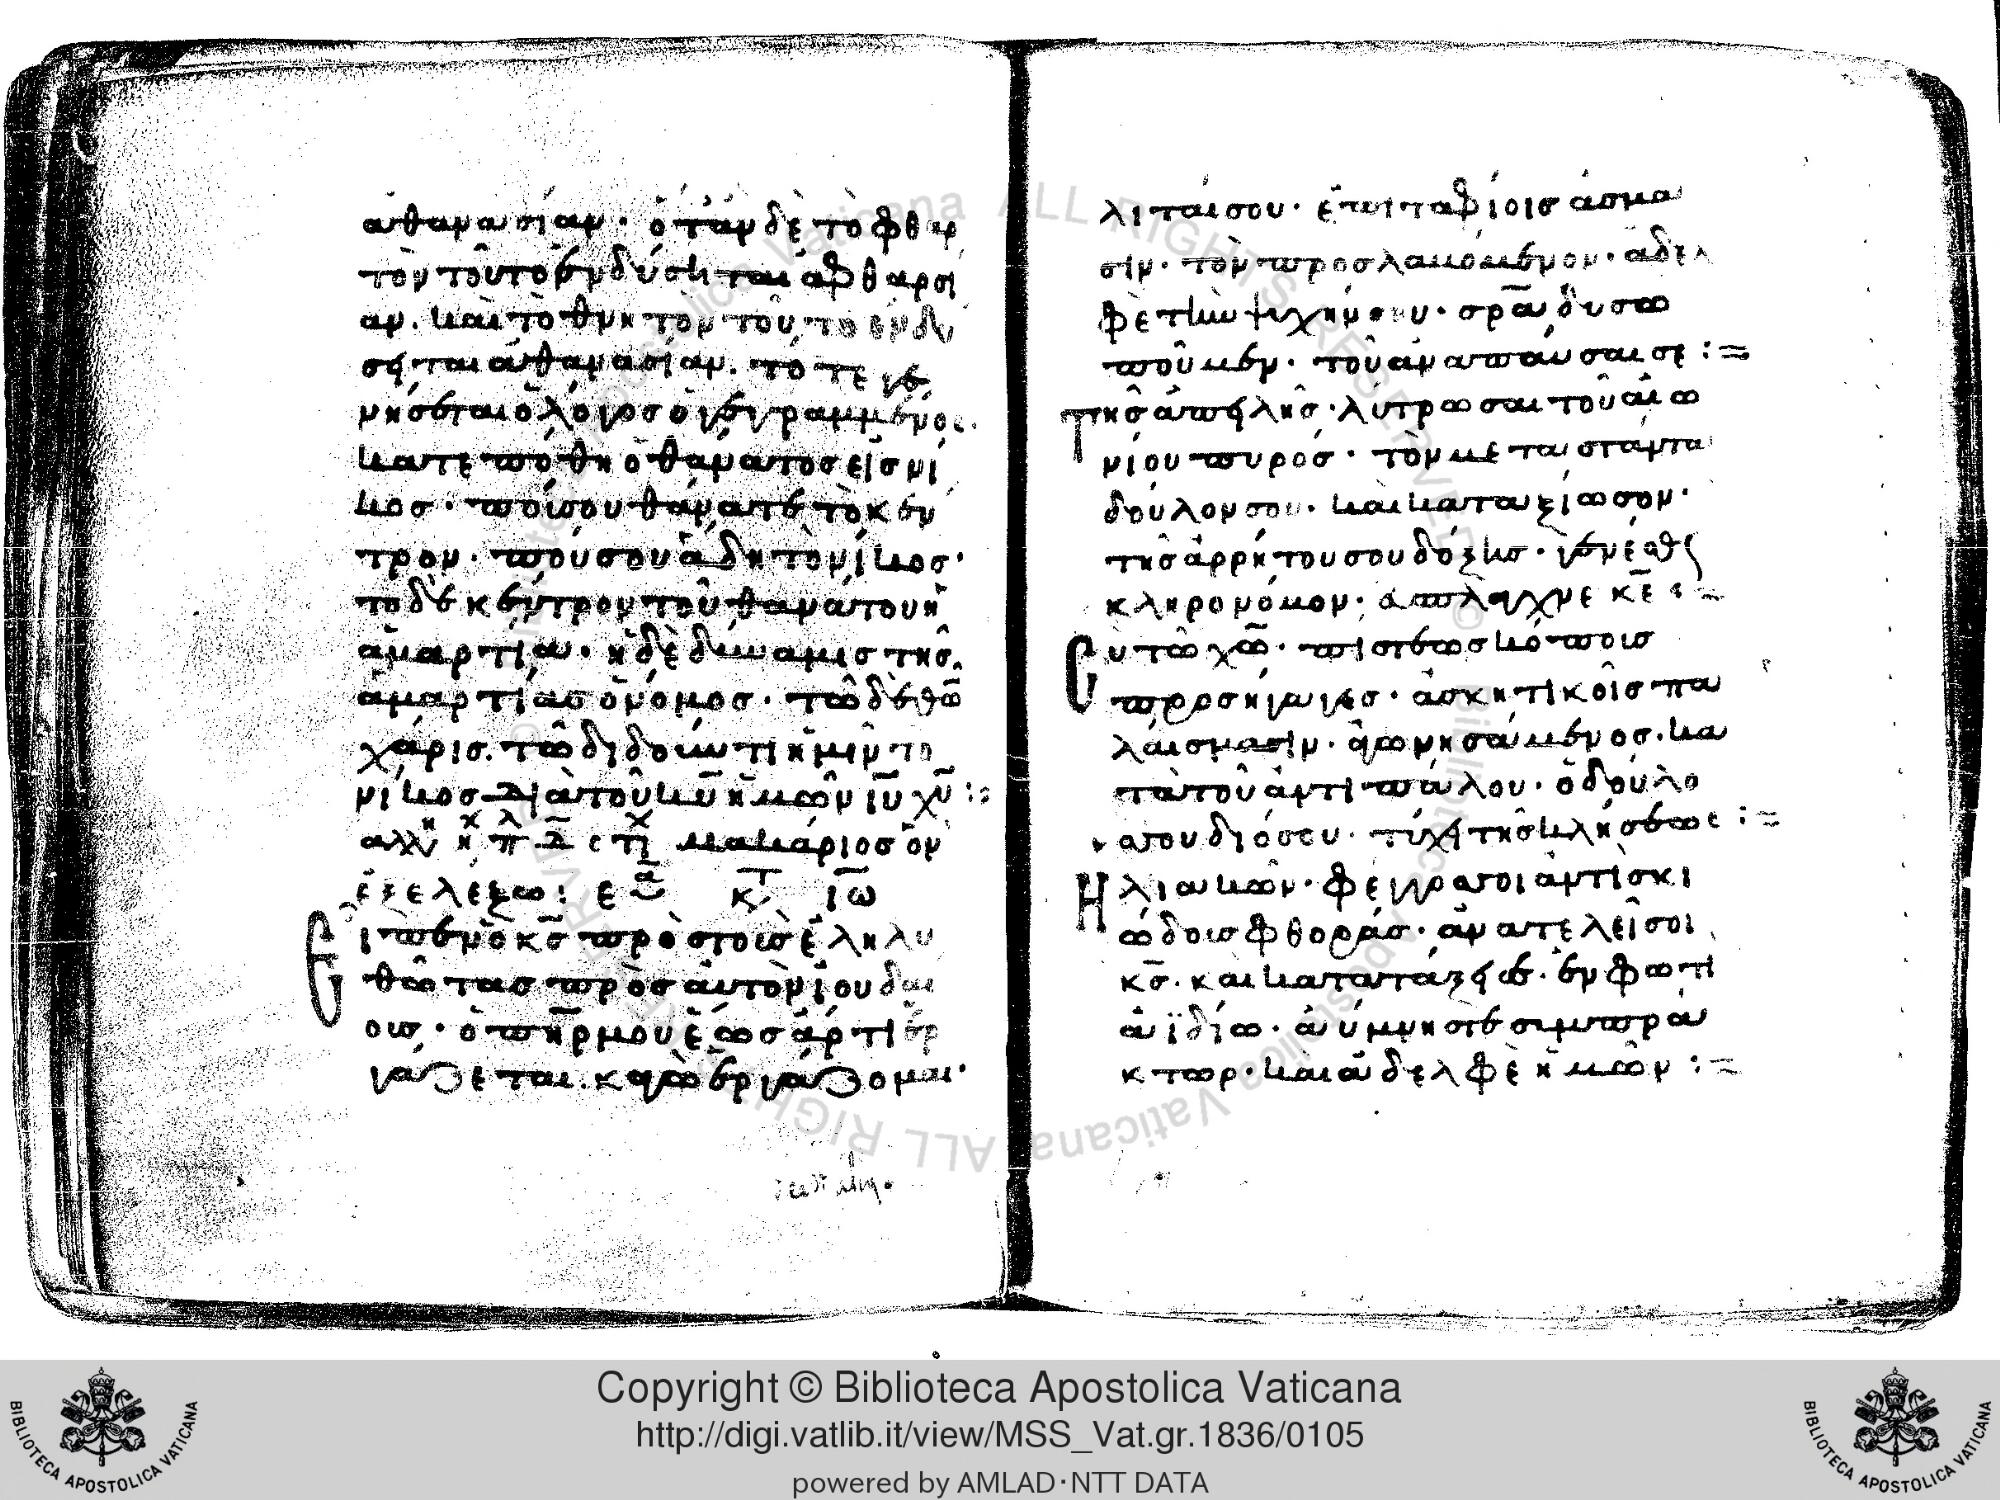 ἀθανασίαν· ὅταν δὲ τὸ φθαρ
τὸν τοῦτο ἐνδύσηται ἀφθαρσί
αν. καὶ τὸ θνητὸν τοῦτο ἐνδύ
σηται ἀθανασίαν. τότε γε
νήσεται ὁ λόγος ὁ γεγραμμένος.
κατεπόθη ὁ θάνατος εἰς νῖ
κος· ποῦ σου θάνατε τὸ κέν
τρον· ποῦ σου ἅδη τὸ νίκος·
τὸ δὲ κέντρον τοῦ θανάτου ἡ
ἁμαρτία· ἡ δὲ δύναμις τῆς
ἁμαρτίας ὁ νόμος· τῷ δὲ θω
χάρις. τῷ διδόντι ἡμῖν τὸ
νίκος διὰ τοῦ κυ ἡμῶν ιυ χυ :=
μακάριος ὃν
ἐξελέξω: ιω
Εἶπεν ὁ κς πρὸς τοὺς ἐληλυ
θότας πρὸς αὐτὸν ἰουδαί
ους· ὁ πηρ μου ἕως ἄρτι ἐρ
γάζεται. κἀγὼ ἐργάζομαι·
λιταῖς σου· ἐπιταφίοις ἄσμα
σιν· τὸν προσλαμόμενον· ἀδελ
φὲ τὴν ψυχήν σου· σραν δυσω
ποῦμεν· τοῦ ἀναπαῦσαι σε :=
Τῆς ἀπειλῆς· λύτρωσαι τοῦ αἰω
νίου πυρός· τὸν μεταστάντα
δοῦλον σου· καὶ καταξίωσον·
τῆς ἀρρήτου σου δόξης· γενέσθαι
κληρονόμον· εὔσπλαγχνε κε :=
Εὐτῷ χω· πιστεῶς κόποις
προσήγαγες· ἀσκητικοῖς πα
λαίσμασιν· ἀγωνησάμενος· κα
τὰ τοῦ ἀντιπάλου· ὁ δοῦλο
σου διόσου· τύχῃ τῆς κλήσεως :=
Ἡλιακῶν· φέγγρατοι ἀντὶ σκι
ώδους φθορᾶς· ἀνατελεῖ σοι
κς· καὶ κατατάξει σε· ἐν φωτὶ
ἀϊδίω· ἀύμνησιε σύμπρά
κτωρ· καὶ ἀδελφὲ ἡμῶν :=
Copyright © Biblioteca Apostolica Vaticana
http://digi.vatlib.it/view/MSS_Vat.gr.1836/0105
powered by AMLAD·NTT DATA
BIBLIOTECA APOSTOLICA VATICANA
BIBLIOTECA APOSTOLICA VATICANA